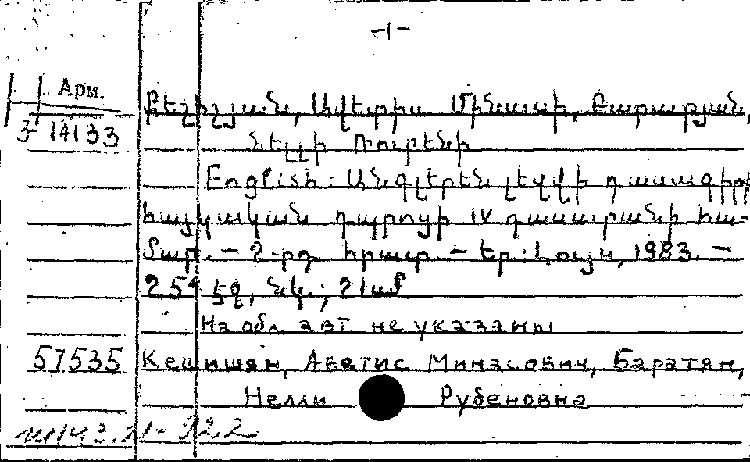 -1-
Арм.
Քեշիշյան, Ավետիս Մինասի, Բարաթյան,
3-14133
Նելլի Ռուբենի
English: Անգլերեն լեզվի դասագիրք
հայկական դպրոցի IV դասարանի հա-
մար. - 2-րդ հրատ. - Եր.: Լույս, 1983. -
254 էջ, նկ.; 21սմ
На обл. авт. не указаны
57535 Кешишян, Аветис Минасович, Баратян,
Нелли Рубеновна